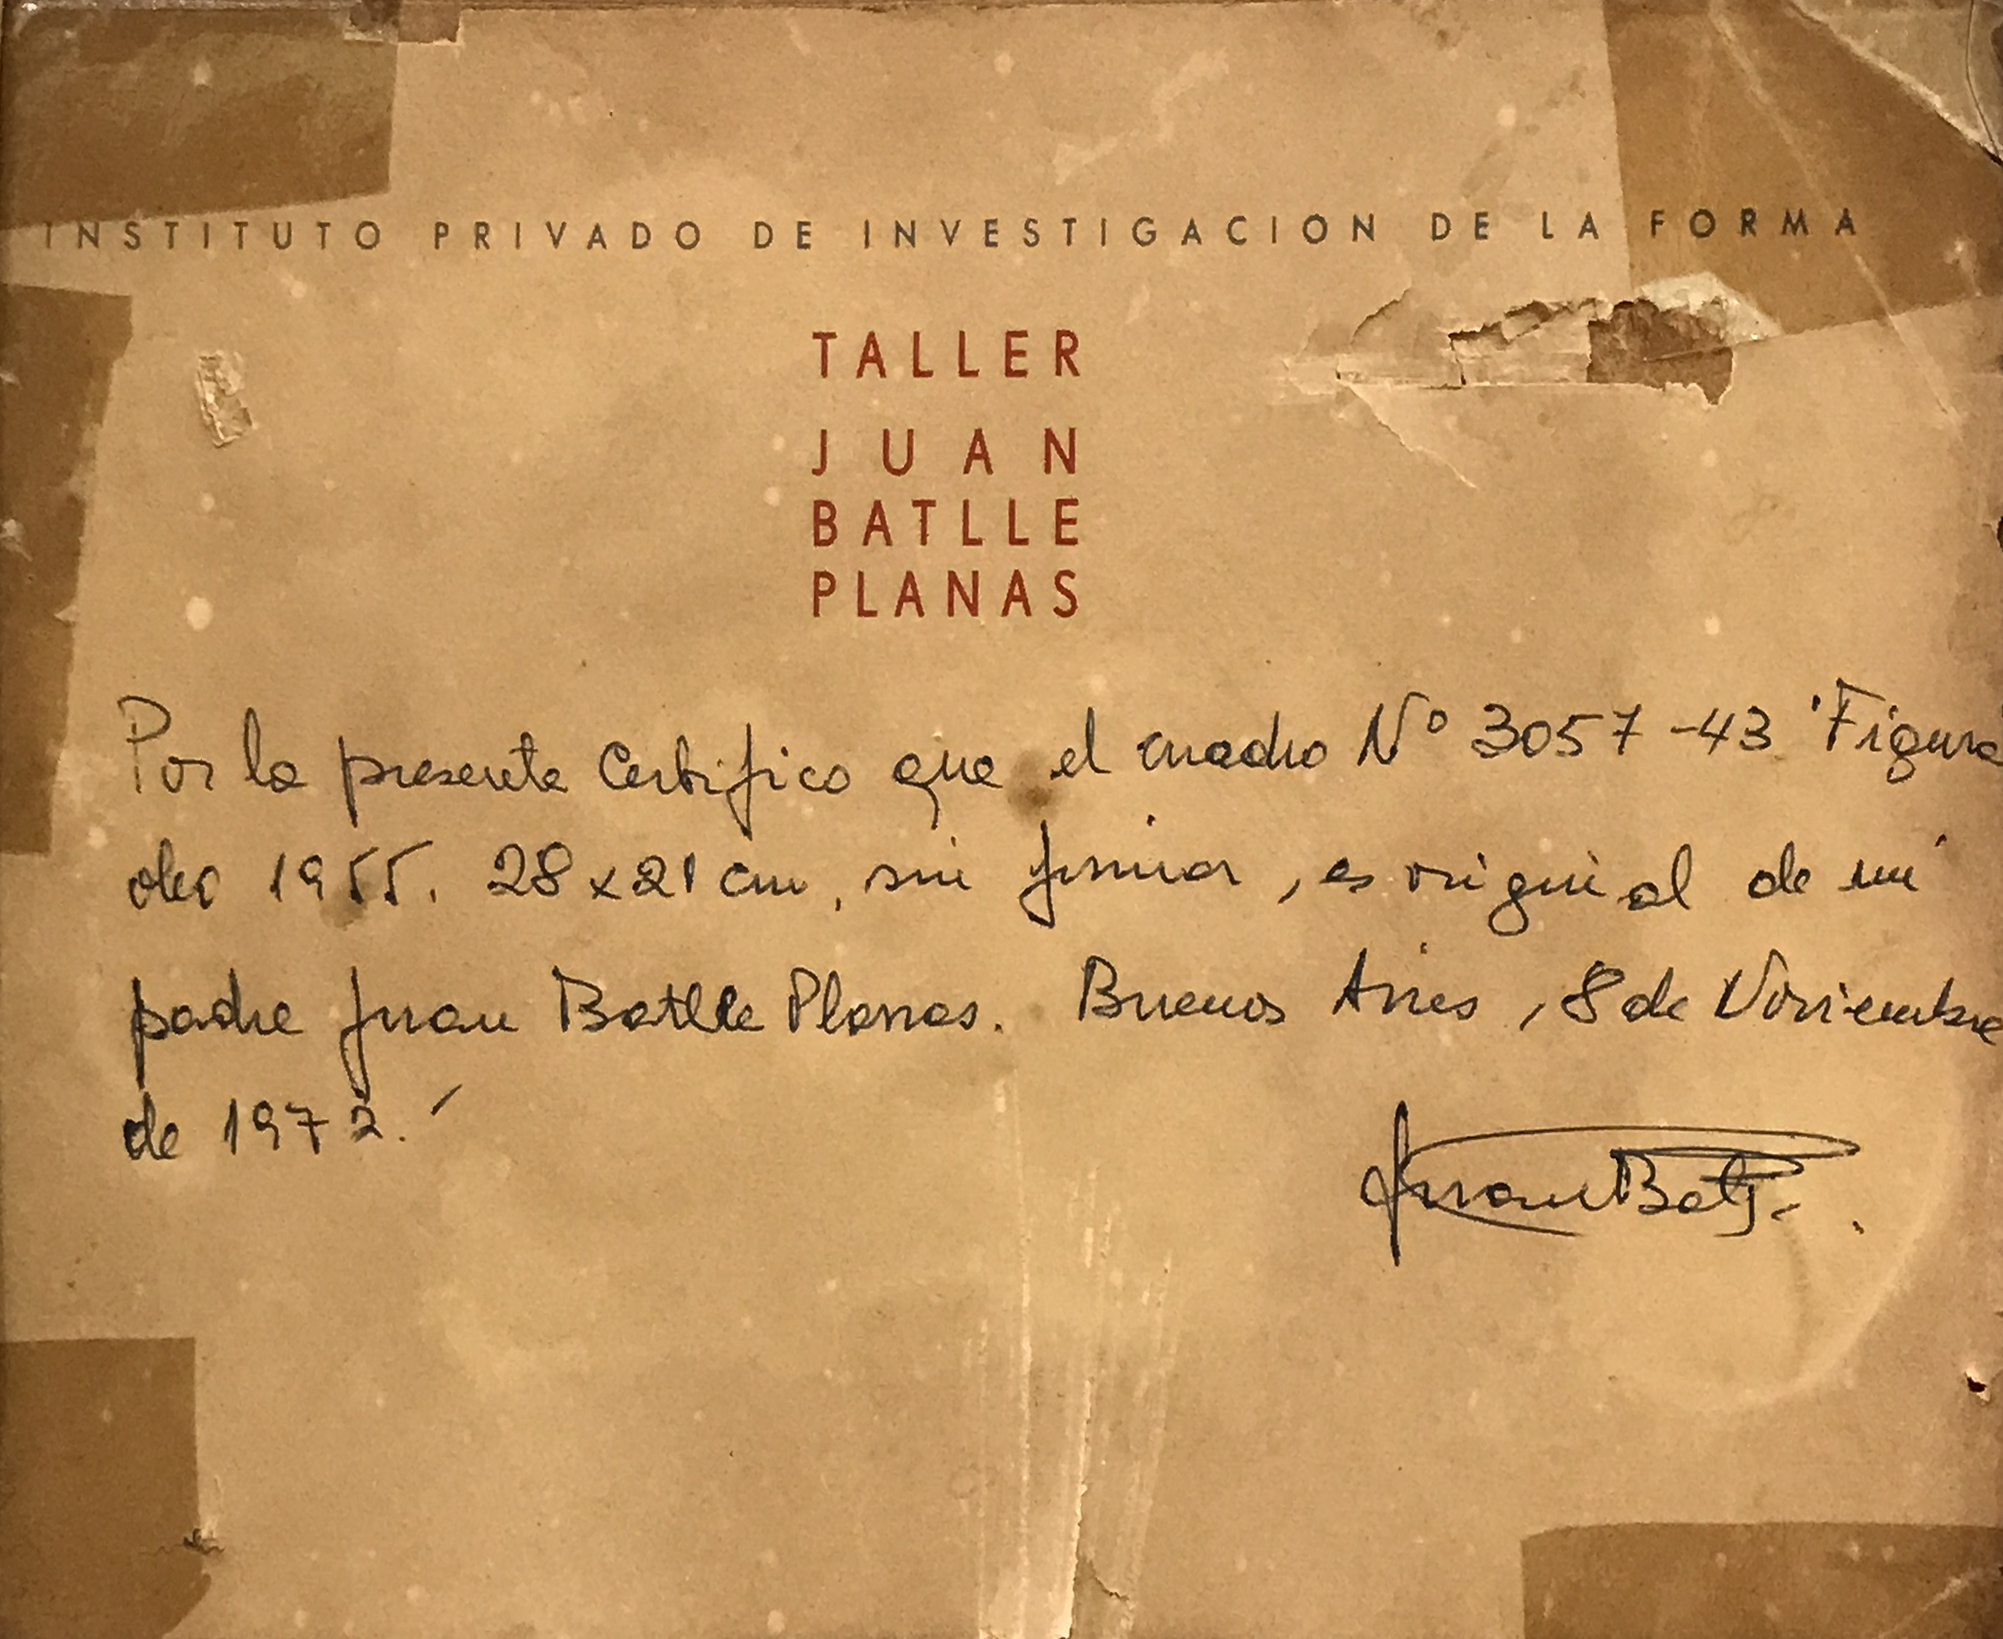 INSTITUTO PRIVADO DE INVESTIGACION DE LA FORMA
TALLER
JUAN
BATLLE
PLANAS
Por la presente Certifico que el cuadro Nº 3057-43 'Figura
oleo 1955. 28x21 cm, sin firmar, es original de mi
padre Juan Batlle Planas. Buenos Aires, 8 de Noviembre
de 1972.
Juan Batlle